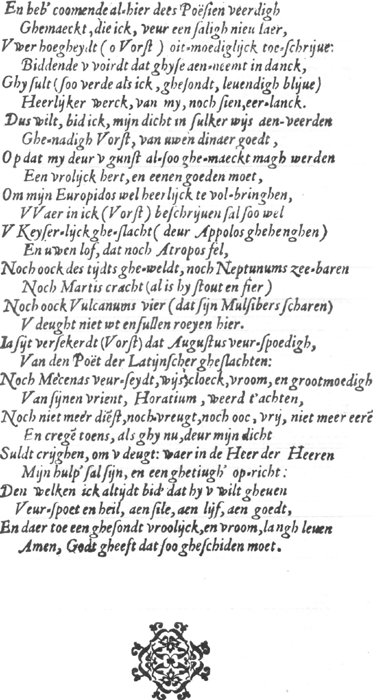 En heb' coomende al-hier dees Poësien veerdigh
Ghemaeckt, die ick, veur een saligh nieu Iaer,
V wer hoegheydt (o Vorst) oit-moediglijck toe-schrijue:
Biddende v voirdt dat ghyse aen-neemt in danck,
Ghy sult (soo verde als ick, ghesondt, leuendigh blijue)
Heerlijker werck, van my, noch sien, eer-lanck.
Dus wilt, bid ick, mijn dicht in sulker wijs aen-veerden
Ghe-nadigh Vorst, van uwen dinaer goedt,
Op dat my deur v gunst al-soo ghe-maeckt magh werden
Een vrolijck hert, en eenen goeden moet,
Om mijn Europidos wel heerlijck te vol-bringhen,
VVaer in ick (Vorst) beschrijuen sal soo wel
V Keyser-lijck ghe-slacht (deur Appolos ghehenghen)
En uwen lof, dat noch Atropos fel,
Noch oock des tijdts ghe-weldt, noch Neptunums zee-baren
Noch Martis cracht (al is hy stout en fier)
Noch oock Vulcanums vier (dat sijn Mulsibers scharen)
V deught niet wt en sullen roeyen hier.
Ia sijt versekerdt (Vorst) dat Augustus veur-spoedigh,
Van den Poët der Latijnscher gheslachten:
Noch Mecenas veur-seydt, wijs, cloeck, vroom, en grootmoedigh
Van sijnen vrient, Horatium, weerd t'achten,
Noch niet meer diest, noch vreugt, noch ooc, vrij, niet meer eerē
En cregē toens, als ghy nu, deur mijn dicht
Suldt crijghen, om v deugt: waer in de Heer der Heeren
Mijn hulp' sal sijn, en een ghetiugh' op-richt:
Den welken ick altijdt bid' dat hy v wilt gheuen
Veur-spoet en heil, aen sile, aen lijf, aen goedt,
En daer toe een ghesondt vroolijck, en vroom, langh leuen
Amen, Godt gheeft dat soo gheschiden moet.